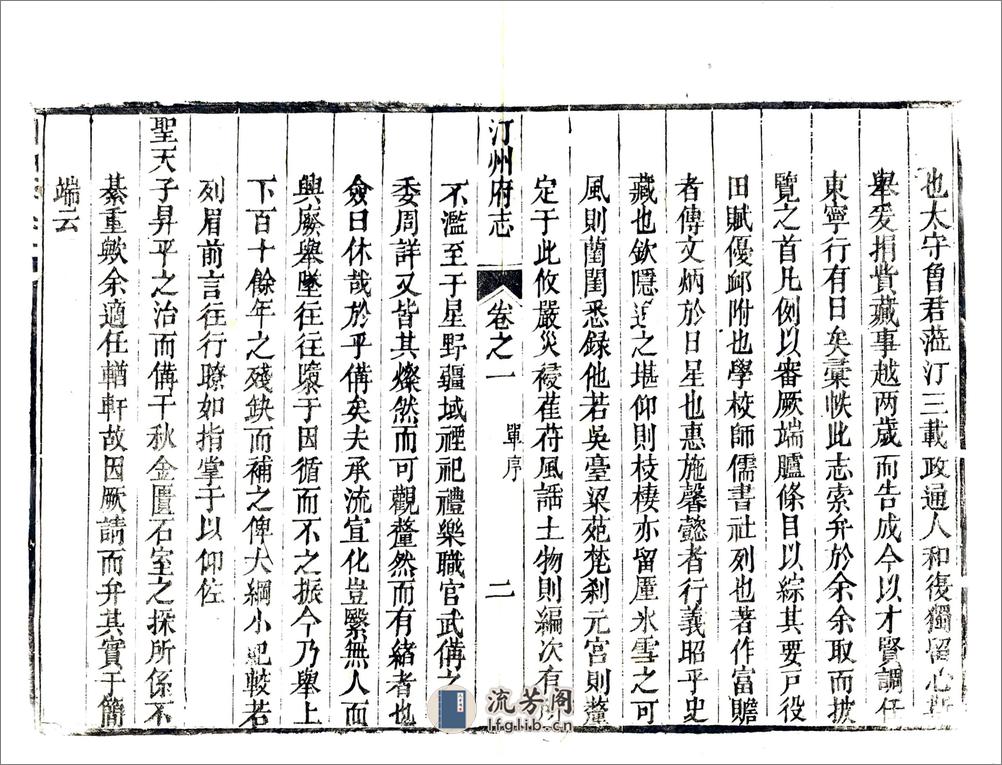 也太守曾君蒞汀三載政通人和復獨留心
舉爰捐貲蕆事越两歲而告成今以才賢調任
東寧行有日矣彙帙此志索弁於余余取而披
覽之首凡例以審厥端臚條目以綜其要戶役
田賦優邮附也學校師儒書社列也著作富贍
者傳文炳於日星也惠施馨懿者行義昭乎史
藏也欽隱逸之堪仰則枝棲亦留厘氷雪之可
風則蘭閨悉録他若吳臺梁苑梵刹元宫則釐
定于此攸嚴災祲萑苻風謡土物則編次有
汀州府志 卷之一 單序 二
不濫至于星野疆域禋祀禮樂職官武備之
委周詳又皆其燦然而可觀釐然而有緒者也
僉曰休哉於乎備矣夫承流宣化豈繄無人而
興廢舉墜往往隳于因循而不之振今乃舉上
下百十餘年之殘缺而補之俾大綱小紀較若
列眉前言往行瞭如指掌于以仰佐
聖天子昇平之治而備千秋金匱石室之採所係不
綦重歟余適任輶軒故因厥請而弁其實于簡
端云
流芳阁
lfglib.cn